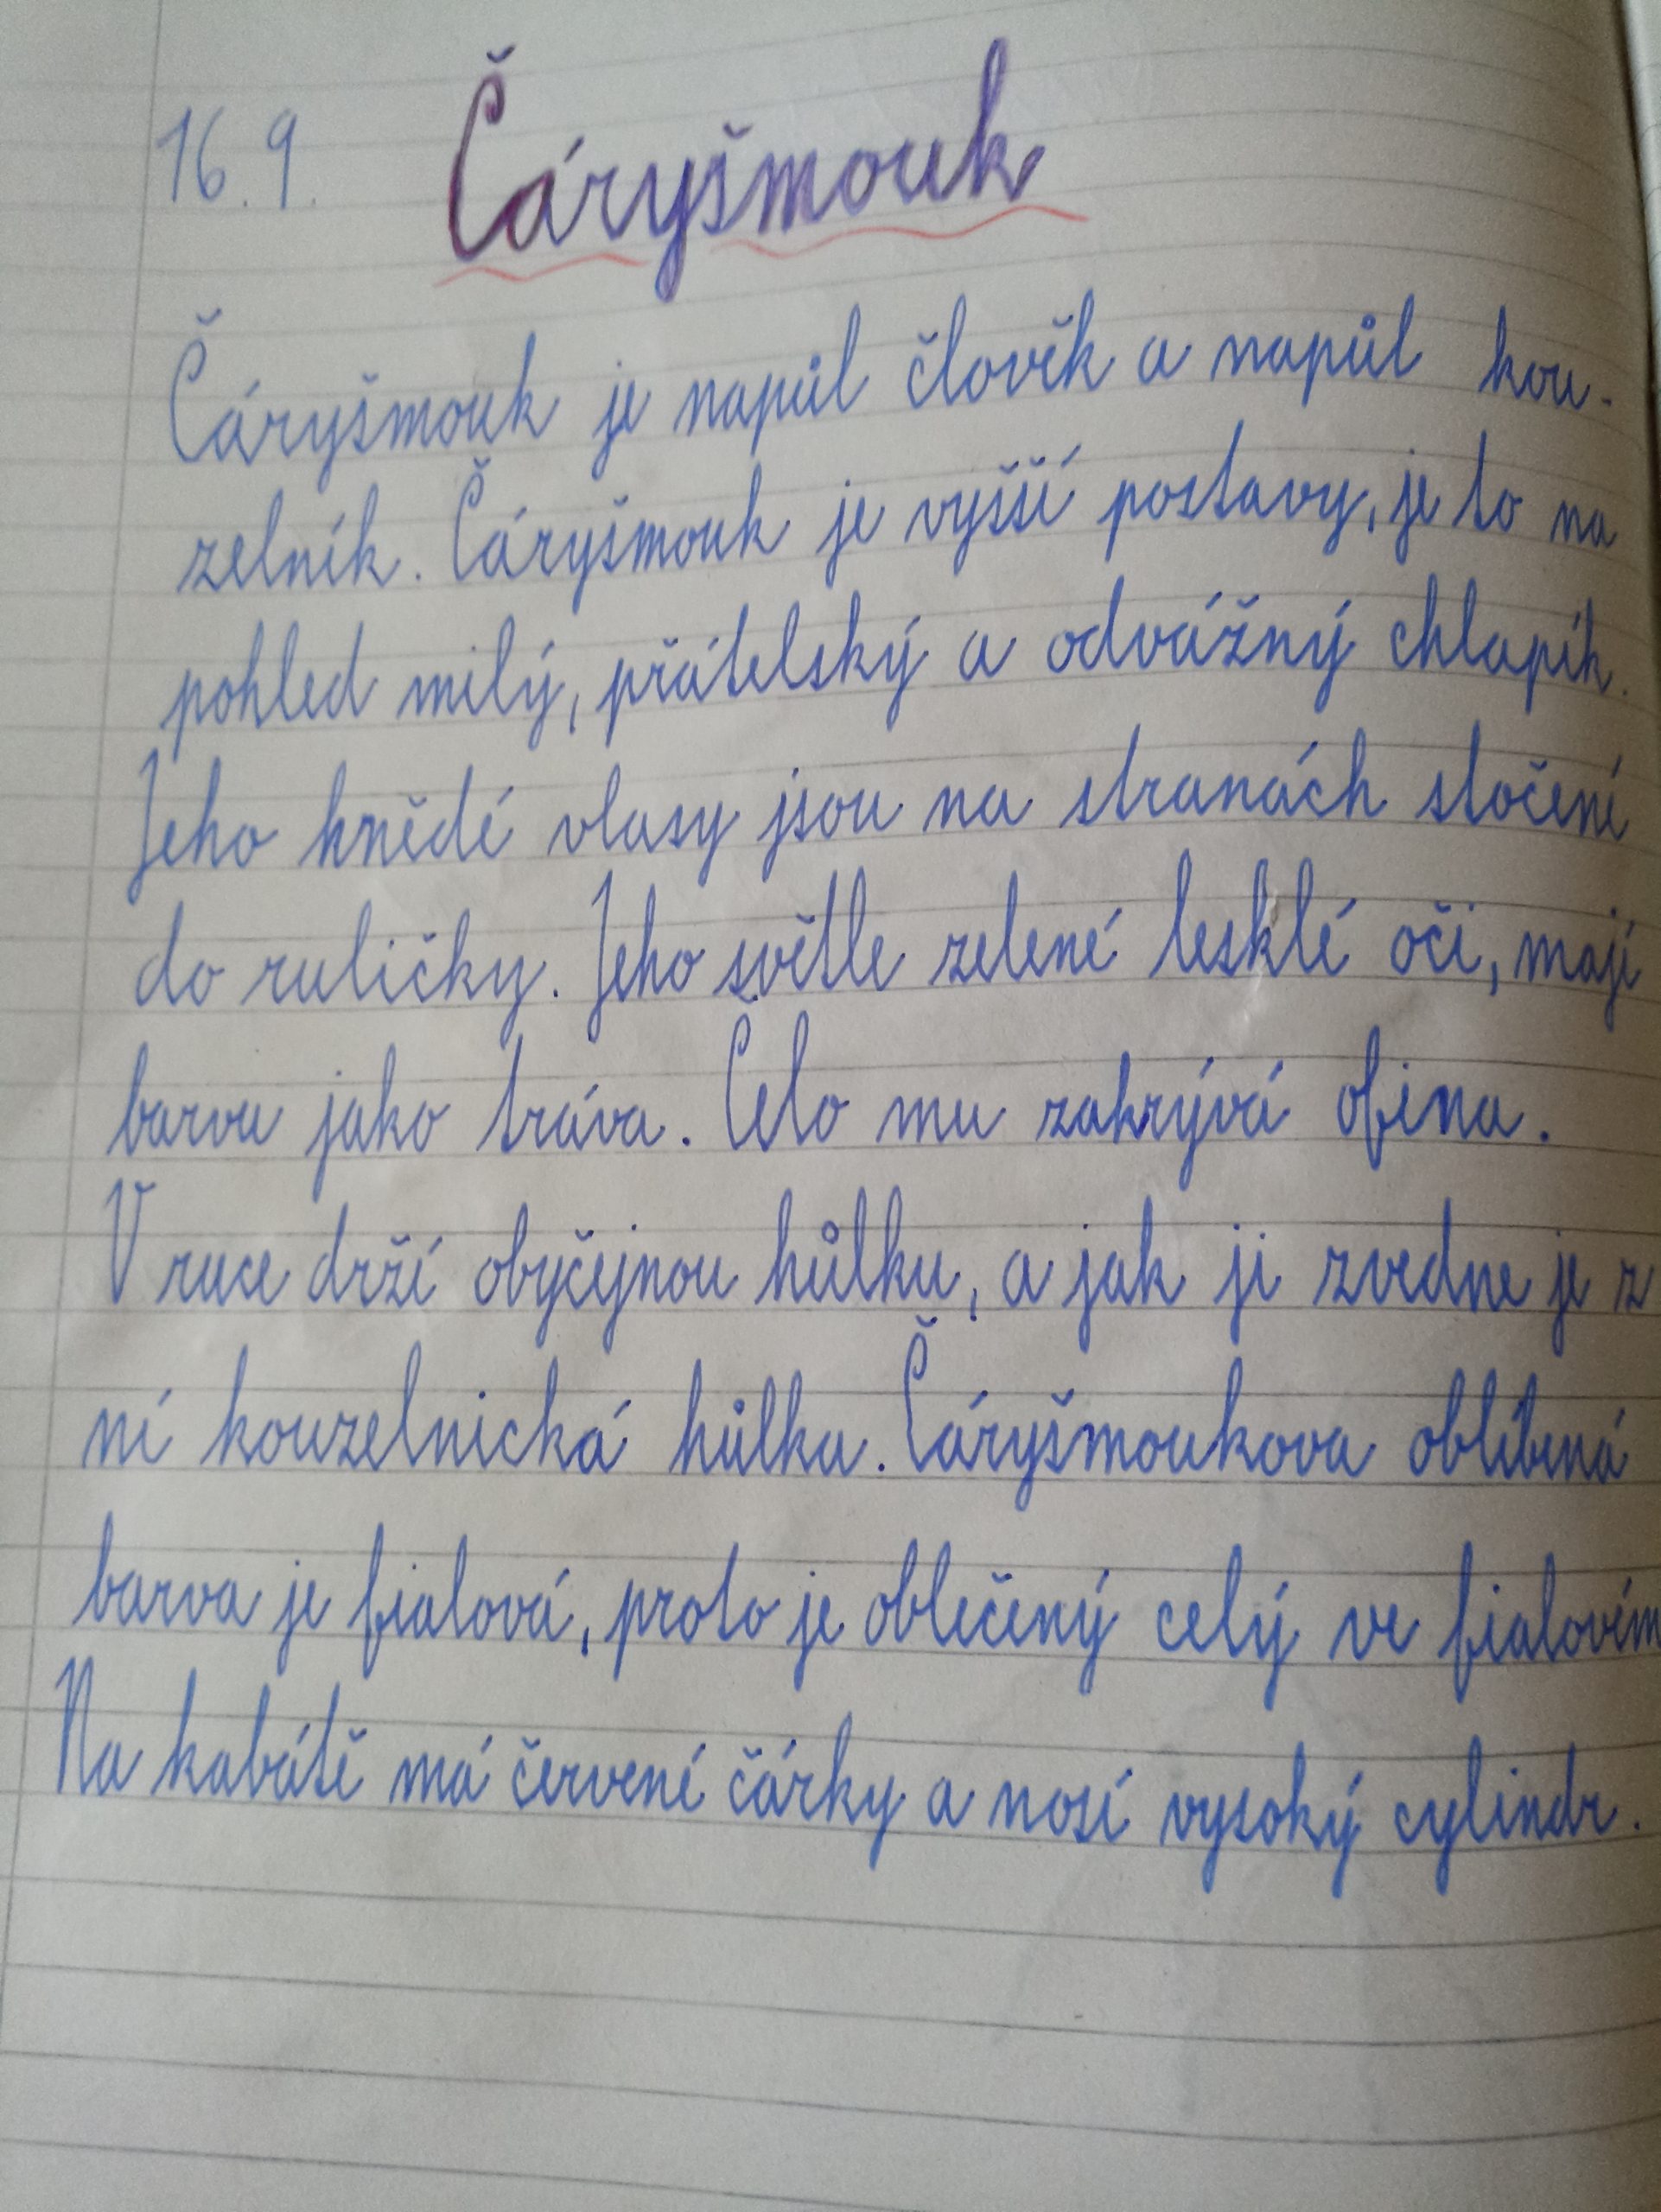 16. 9. Čáryšmouk
Čáryšmouk je napůl člověk a napůl kou-
zelník. Čáryšmouk je vyšší postavy, je to na
pohled milý, přátelský a odvážný chlapík.
Jeho hnědé vlasy jsou na stranách stočené
do ruličky. Jeho světle zelené lesklé oči, mají
barvu jako tráva. Čelo mu zakrývá ofina.
V ruce drží obyčejnou hůlku, a jak ji zvedne je z
ní kouzelnická hůlka. Čáryšmoukova oblíbená
barva je fialová, proto je oblečený celý ve fialovém
Na kabátě má červené čárky a nosí vysoký cylindr.